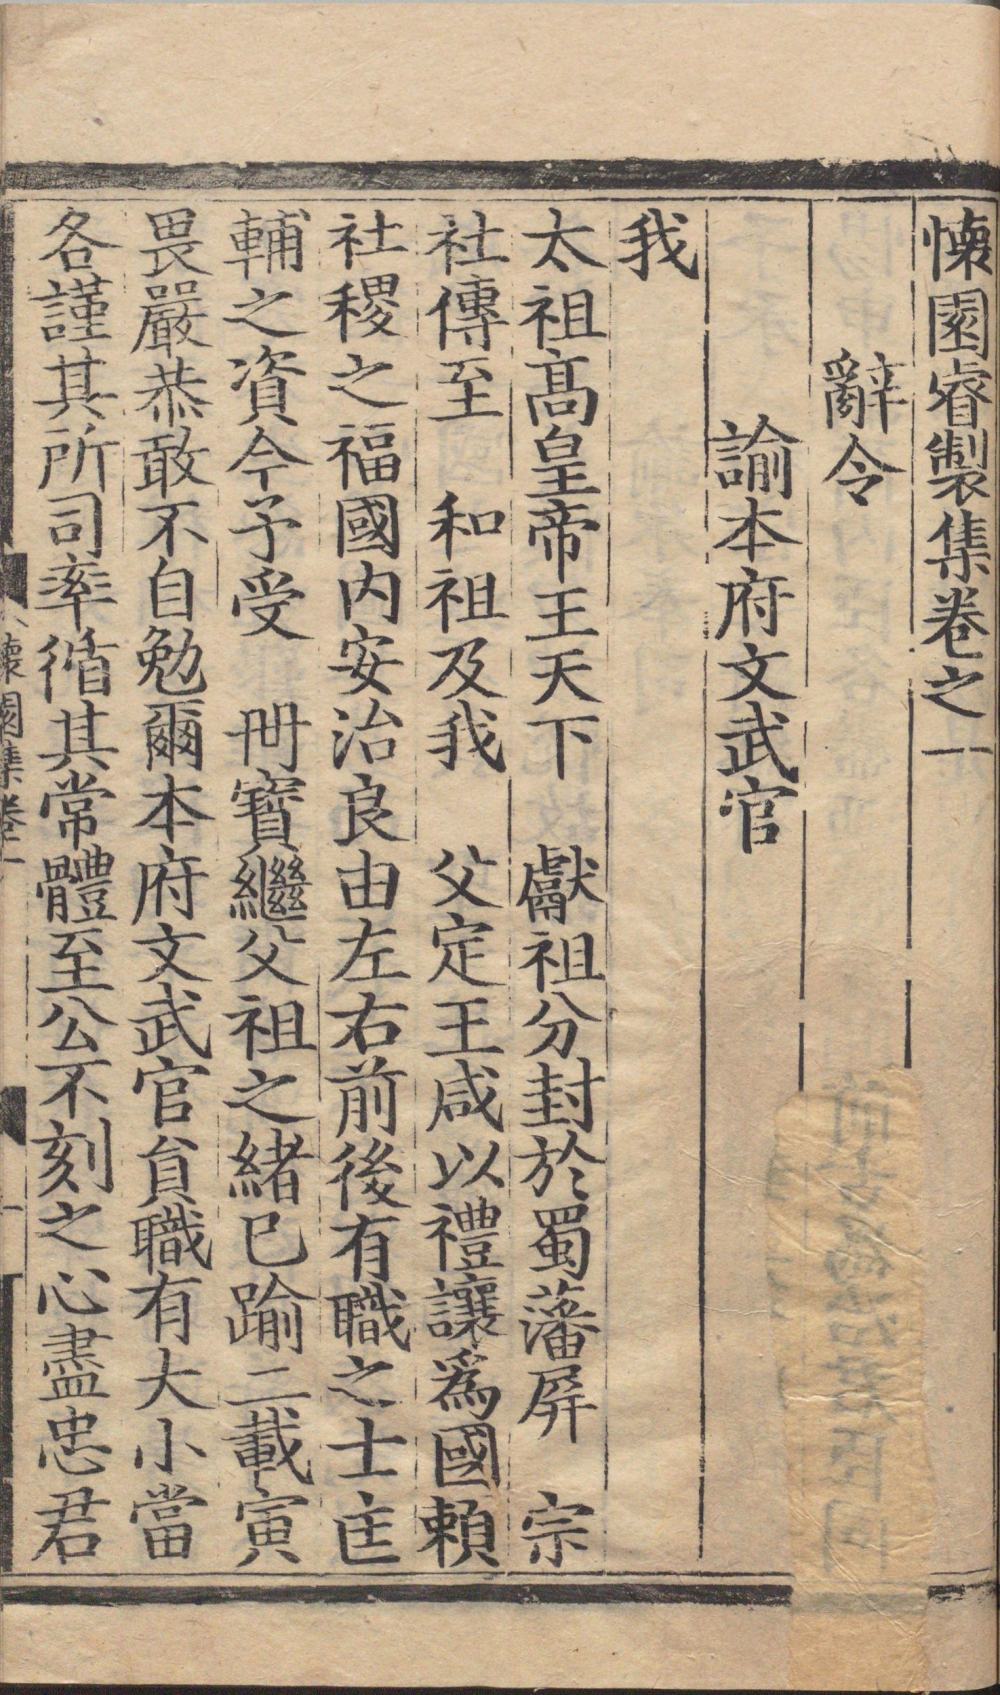 懷園睿製集卷之一
辭令
諭本府文武官
我
太祖高皇帝王天下　獻祖分封於蜀藩屏　宗
社傳至　和祖及我　父定王咸以禮讓爲國賴
社稷之福國内安治良由左右前後有職之士匡
輔之資今予受　冊寶繼父祖之緒已踰二載寅
畏嚴恭敢不自勉爾本府文武官貟職有大小當
各謹其所司率循其常體至公不刻之心盡忠君
懷園集卷一
一